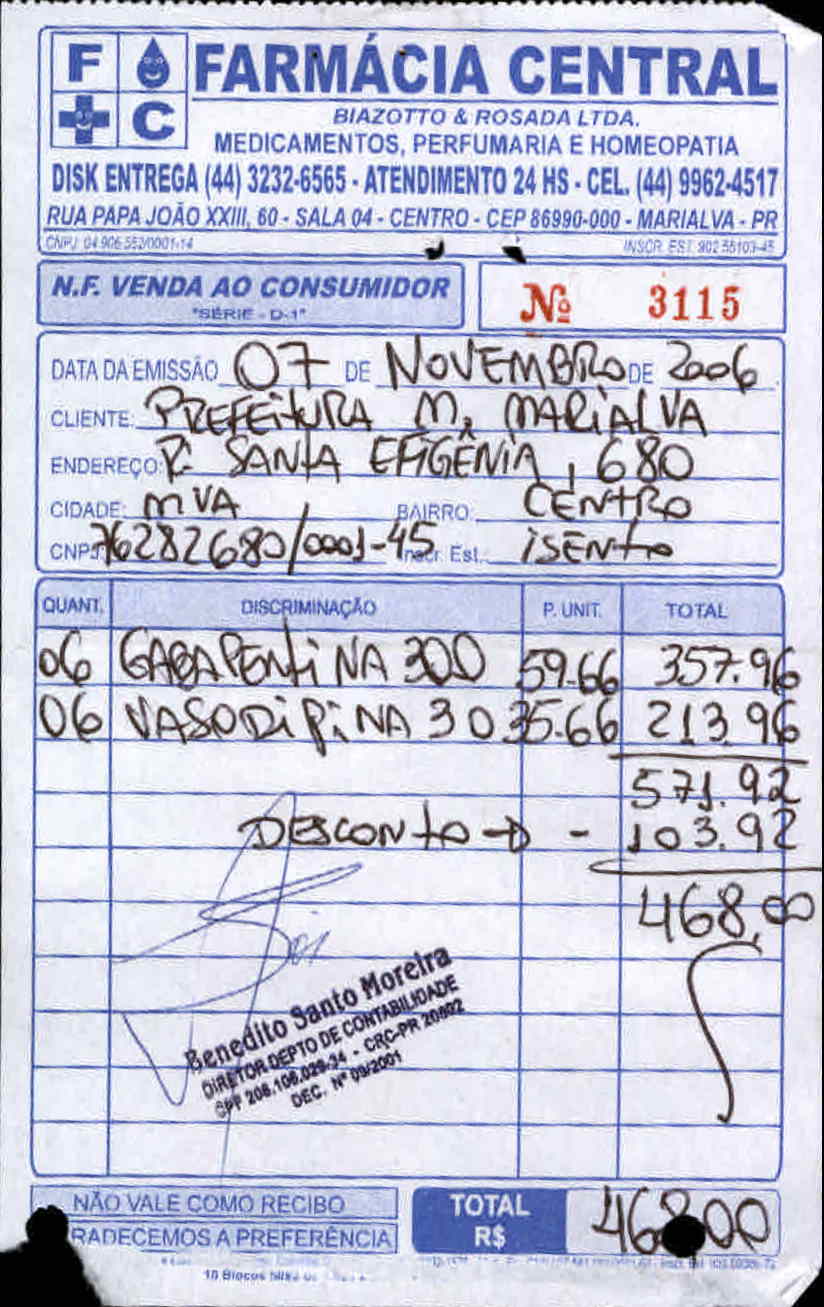 F C
FARMÁCIA CENTRAL
BIAZOTTO & ROSADA LTDA.
MEDICAMENTOS, PERFUMARIA E HOMEOPATIA
DISK ENTREGA (44) 3232-6565 - ATENDIMENTO 24 HS - CEL. (44) 9962-4517
RUA PAPA JOÃO XXIII, 60 - SALA 04 - CENTRO - CEP 86990-000 - MARIALVA - PR
CNPJ: 04.906.552/0001-14 INSCR. EST. 902.55103-45
N.F. VENDA AO CONSUMIDOR
"SÉRIE - D-1"
Nº 3115
DATA DA EMISSÃO 07 DE NOVEMBRO DE 2006
CLIENTE: PREFEITURA M. MARIALVA
ENDEREÇO: R. SANTA EFIGÊNIA, 680
CIDADE: MVA BAIRRO: CENTRO
CNPJ 76282680/0001-45 Inscr. Est.: ISENTO
QUANT. DISCRIMINAÇÃO P. UNIT. TOTAL
06 GABAPENTINA 300 59.66 357.96
06 VASODIPINA 30 35.66 213.96
571.92
DESCONTO → - 103.92
468,00
Benedito Santo Moreira
DIRETOR DEPTO DE CONTABILIDADE
CPF 206.106.029-34 - CRC-PR 20692
DEC. Nº 09/2001
NÃO VALE COMO RECIBO
RADECEMOS A PREFERÊNCIA
TOTAL R$ 468,00
10 Blocos